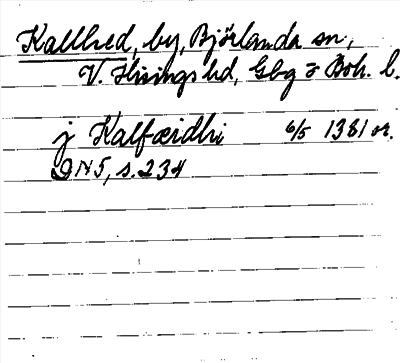 Kallhed, by, Björlanda sn,
V. Hisings hd, Gbg o Boh. l.
j Kalfæridhi 6/5 1381 or.
DN 5, s. 234